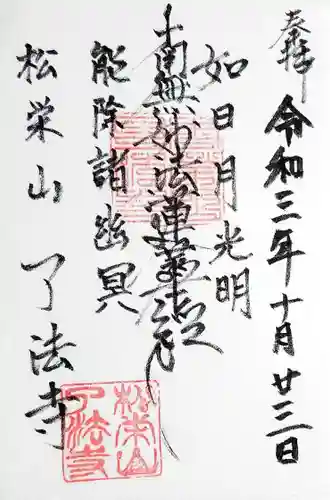 奉拝
令和三年十月廿三日
如日月光明
南無妙法蓮華経
能除諸幽冥
松栄山 了法寺
松栄山
了法寺